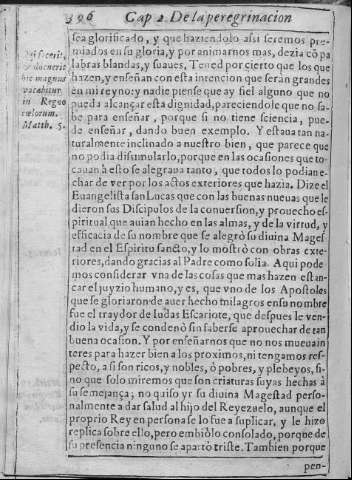 396 Cap 2. De la peregrinacion
sea glorificado, y que haziendolo assi seremos pre-
miados en su gloria, y por animarnos mas, dezia cõ pa
labras blandas, y suaues, Tened por cierto que los que
hazen, y enseñan con esta intencion que serán grandes
en mi reyno: y nadie piense que ay fiel alguno que no
pueda alcançar esta dignidad, pareciendole que no sa-
be para enseñar, porque si no tiene sciencia, pue-
de enseñar, dando buen exemplo. Y estaua tan na-
turalmente inclinado a nuestro bien, que parece que
no podia dissimularlo, porque en las ocasiones que to-
cauan à esto se alegraua tanto, que todos lo podian e-
char de ver por los actos exteriores que hazia. Dize el
Euangelista san Lucas que con las buenas nueuas que le
dieron sus Discipulos de la conuersion, y prouecho es-
piritual que auian hecho en las almas, y de la virtud, y
efficacia de su nombre que se alegrò su diuina Mages-
tad en el Espiritu sancto, y lo mostrò con obras exte-
riores, dando gracias al Padre como solia. Aqui pode-
mos considerar vna de las cosas que mas hazen estan-
car el juyzio humano, y es, que vno de los Apostoles
que se gloriaron de auer hecho milagros en su nombre
fue el traydor de Iudas Escariote, que despues le ven-
dio la vida, y se condenò sin saberse aprouechar de tan
buena ocasion. Y por enseñarnos que no nos mueua in
teres para hazer bien a los proximos, ni tengamos res-
pecto, a si son ricos, y nobles, ò pobres, y plebeyos, si-
no que solo miremos que son criaturas suyas hechas à
su semejança; no quiso yr su diuina Magestad perso-
nalmente a dar salud al hijo del Reyezuelo, aunque el
proprio Rey en persona se lo fue a suplicar, y le hizo
replica sobre ello, pero embiòlo consolado, porque de
su presencia ninguno se apartò triste. Tambien porque
pen-
fecerit,
& docuerit
hic magnus
vocabitur
in Regno
cœlorum.
Matth. 5.